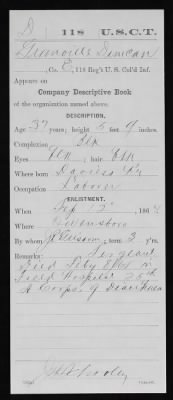 D 118 U.S.C.T.
Granville Duncan
, Co. E, 118 Reg't U. S. Col'd Inf.
Appears on
Company Descriptive Book
of the organization named above.
DESCRIPTION.
Age 37 years; height 5 feet 9 inches.
Complexion Blk
Eyes Blk ; hair Blk
Where born Daviess Ky
Occupation Laborer
ENLISTMENT.
When 186
Where Owensboro
By whom ; term 3 y'rs.
Remarks: Sergeant
Died Feby in
Field Hospital 25th
A Corps of Diarrhoea
Copyist.